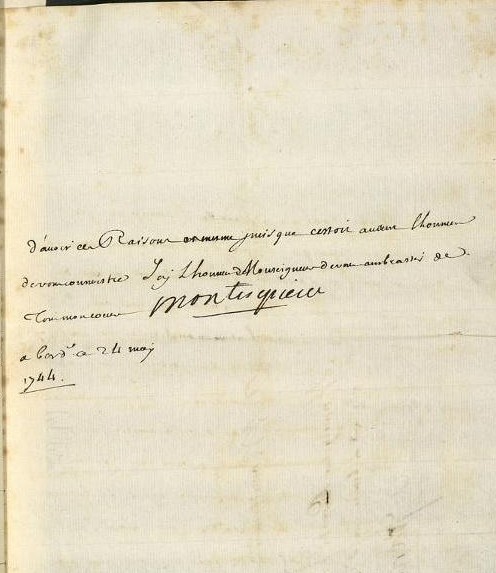 d'avoir ces Raisons puisque cestoit avant lhonneur
de vous connoitre Jai Lhonneur Monseigneur de vous ambrasser de
Tout mon coeur Montesquieu
a bord.x ce 24 may
1744.